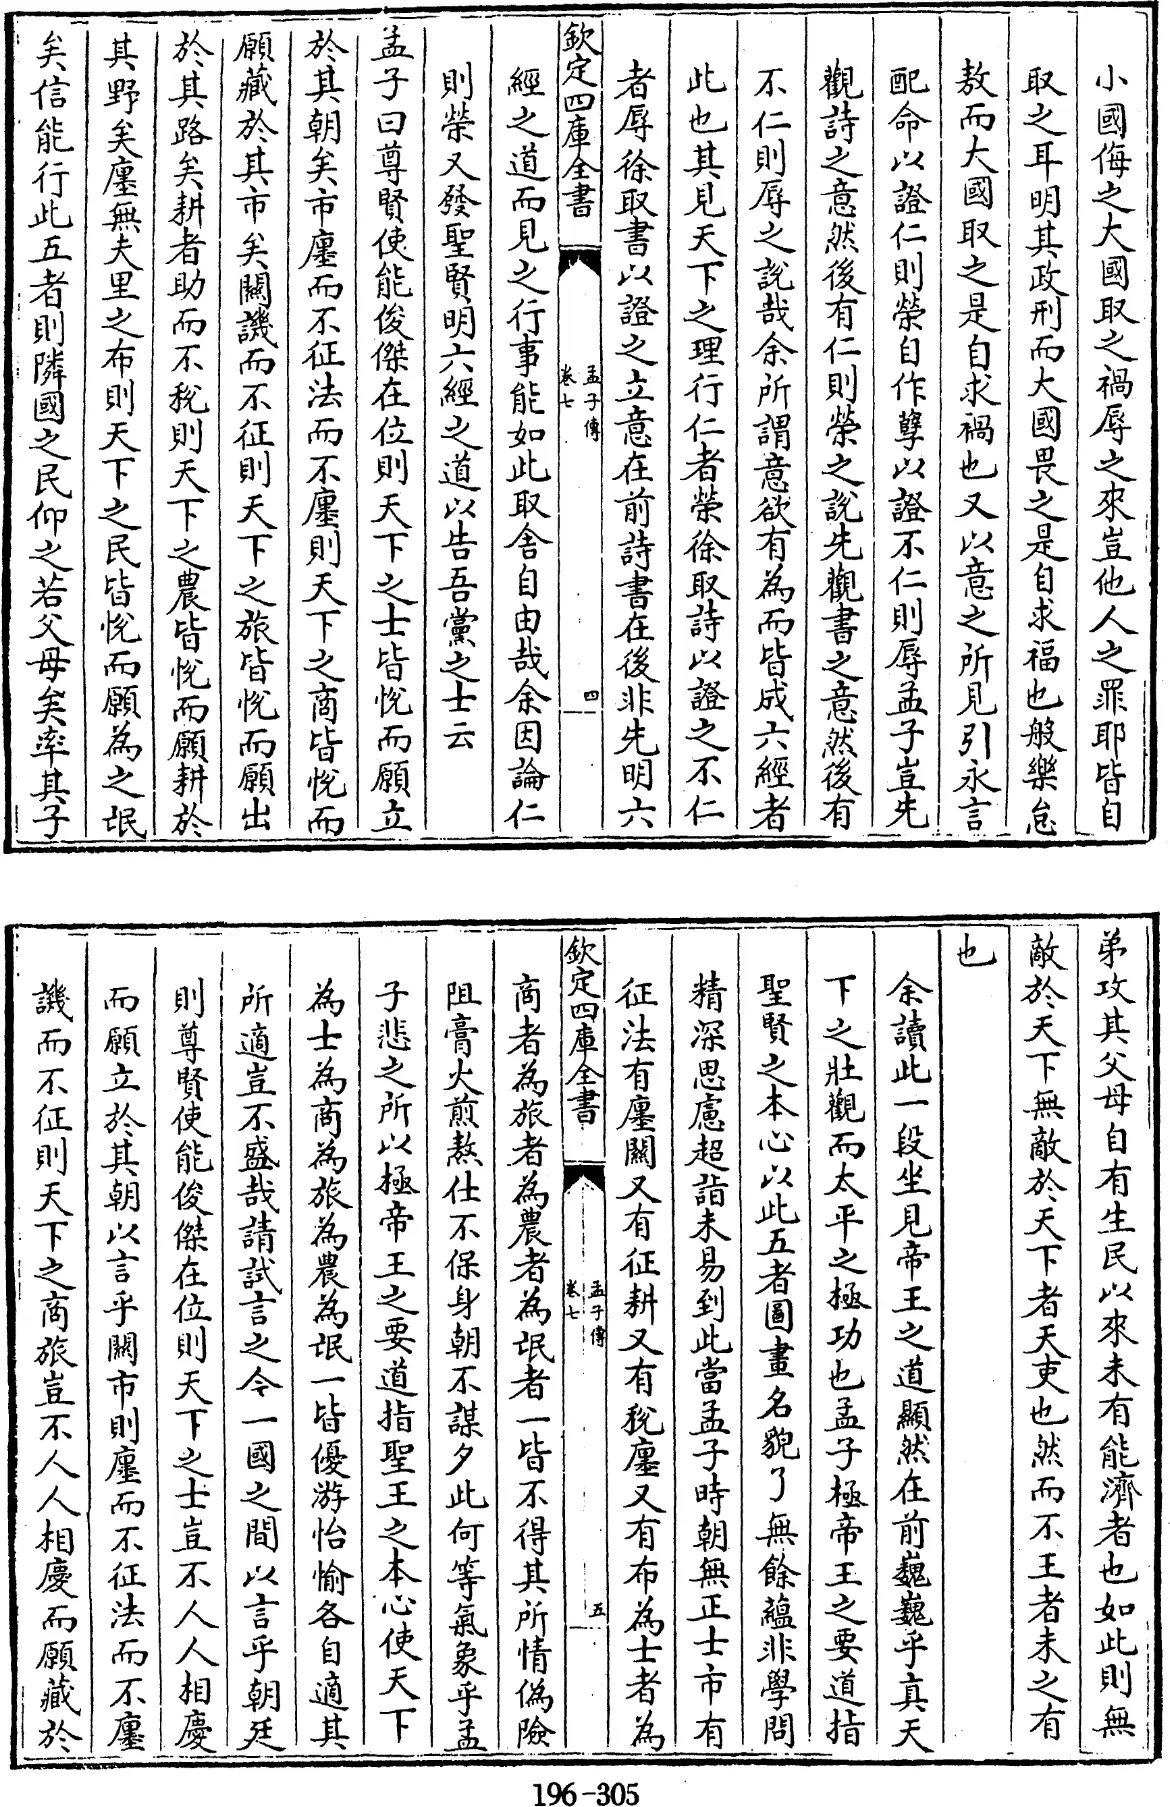 小國侮之大國取之禍辱之來豈他人之罪耶皆自
取之耳明其政刑而大國畏之是自求福也般樂怠
敖而大國取之是自求禍也又以意之所見引永言
配命以證仁則榮自作孽以證不仁則辱孟子豈先
觀詩之意然後有仁則榮之說先觀書之意然後有
不仁則辱之說哉余所謂意欲有為而皆成六經者
此也其見天下之理行仁者榮徐取詩以證之不仁
者辱徐取書以證之立意在前詩書在後非先明六
欽定四庫全書
孟子傳
卷七
四
經之道而見之行事能如此取舍自由哉余因論仁
則榮又發聖賢明六經之道以告吾黨之士云
孟子曰尊賢使能俊傑在位則天下之士皆悅而願立
於其朝矣市廛而不征法而不廛則天下之商皆悅而
願藏於其市矣關譏而不征則天下之旅皆悅而願出
於其路矣耕者助而不稅則天下之農皆悅而願耕於
其野矣廛無夫里之布則天下之民皆悅而願為之氓
矣信能行此五者則隣國之民仰之若父母矣率其子
弟攻其父母自有生民以來未有能濟者也如此則無
敵於天下無敵於天下者天吏也然而不王者未之有
也
余讀此一段坐見帝王之道顯然在前巍巍乎真天
下之壯觀而太平之極功也孟子極帝王之要道指
聖賢之本心以此五者圖畫名貌了無餘蘊非學問
精深思慮超詣未易到此當孟子時朝無正士市有
征法有廛關又有征耕又有稅廛又有布為士者為
欽定四庫全書
孟子傳
卷七
五
商者為旅者為農者為氓者一皆不得其所情偽險
阻膏火煎熬仕不保身朝不謀夕此何等氣象乎孟
子悲之所以極帝王之要道指聖王之本心使天下
為士為商為旅為農為氓一皆優游怡愉各自適其
所適豈不盛哉請試言之今一國之間以言乎朝廷
則尊賢使能俊傑在位則天下之士豈不人人相慶
而願立於其朝以言乎關市則廛而不征法而不廛
譏而不征則天下之商旅豈不人人相慶而願藏於
196-305